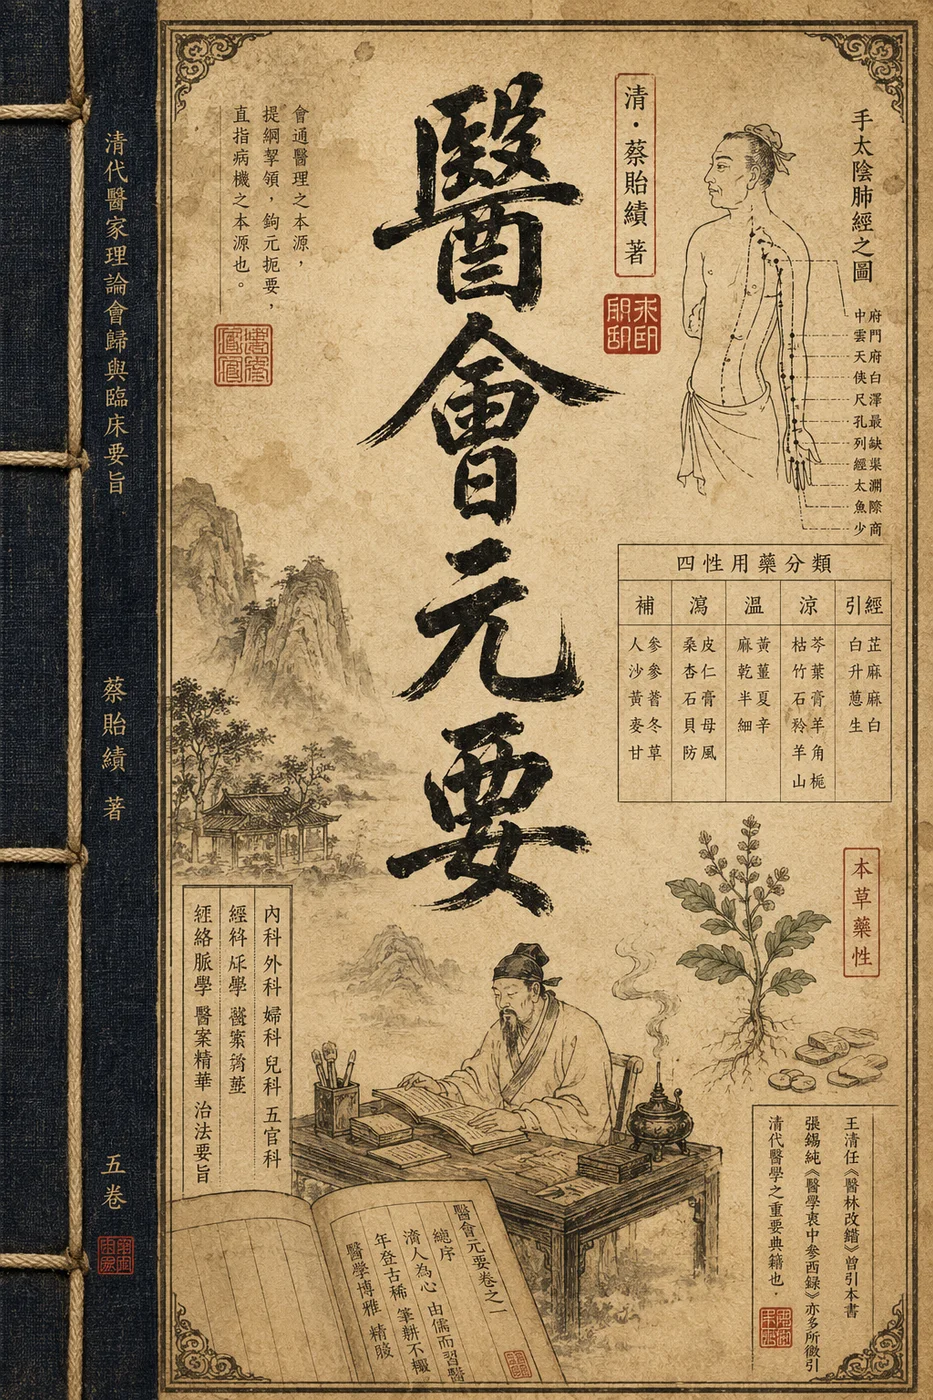 醫會元要
清·蔡貽績 著
會通醫理之本源，
提綱挈領，鉤元扼要，
直指病機之本源也。
手太陰肺經之圖
中府
雲門
天府
俠白
尺澤
孔最
列缺
經渠
太淵
魚際
少商
四性用藥分類
補
瀉
溫
涼
引經
人參
沙參
黃蓍
麥冬
甘草
桑皮
杏仁
石膏
貝母
防風
麻黃
乾薑
半夏
細辛
枯芩
竹葉
石膏
羊
羊角
山梔
白芷
升麻
蔥麻
生白
本草藥性
內科外科 婦科 兒科 五官科
經絡脈學 醫案精華 治法要旨
王清任《醫林改錯》曾引本書
張錫純《醫學衷中參西録》亦多所徵引
清代醫學之重要典籍也．
醫會元要卷之一
總序
由儒而習醫
濟人為心
筆耕不輟
年登古稀
醫學博雅
清代醫家理論會歸與臨床要旨
蔡貽績 著
五卷